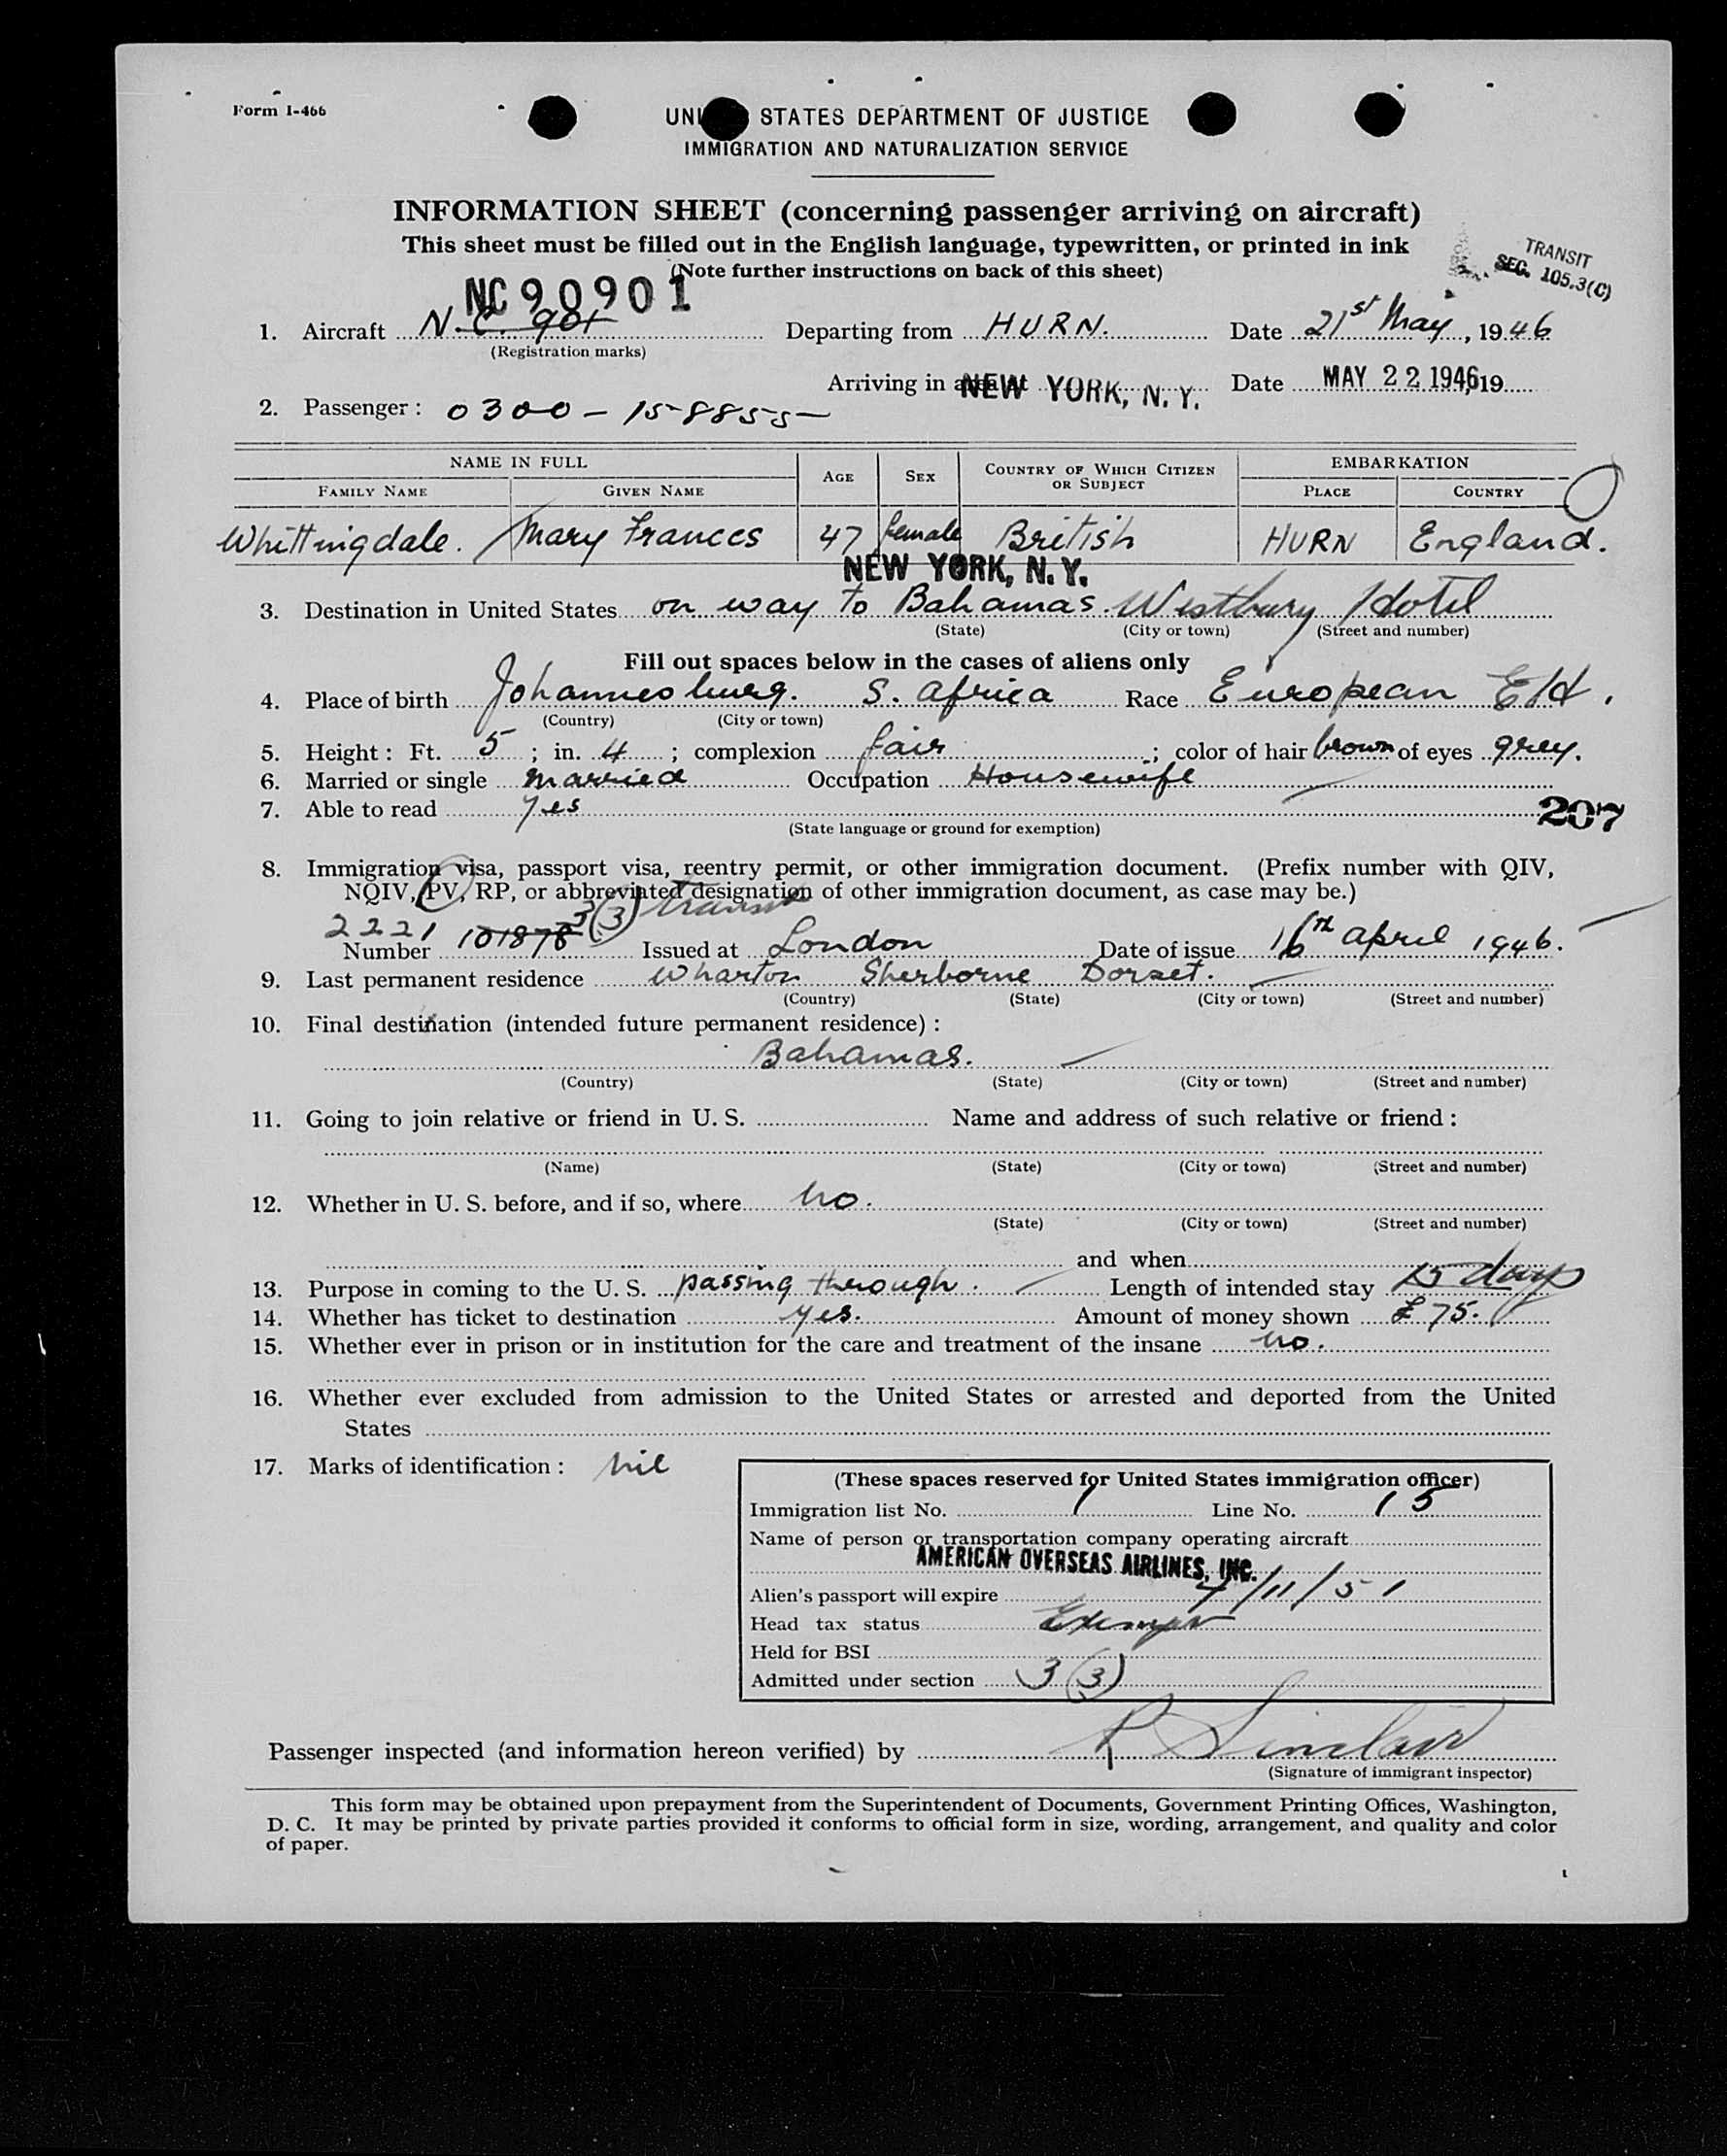 Form I-466
UNI STATES DEPARTMENT OF JUSTICE
IMMIGRATION AND NATURALIZATION SERVICE
INFORMATION SHEET (concerning passenger arriving on aircraft)
This sheet must be filled out in the English language, typewritten, or printed in ink
(Note further instructions on back of this sheet)
TRANSIT
SEC. 105.3(C)
NC 90901
1. Aircraft N.C. 901 Departing from HURN. Date 21st May, 1946
(Registration marks)
Arriving in at NEW YORK, N.Y. Date MAY 22 1946, 19
2. Passenger: 0300-158855
NAME IN FULL AGE SEX COUNTRY OF WHICH CITIZEN OR SUBJECT EMBARKATION
FAMILY NAME GIVEN NAME PLACE COUNTRY
Whittingdale. Mary Frances 47 female British HURN England.
NEW YORK, N.Y.
3. Destination in United States on way to Bahamas. Westbury Hotel
(State) (City or town) (Street and number)
Fill out spaces below in the cases of aliens only
4. Place of birth Johannesburg. S. Africa Race European
(Country) (City or town)
5. Height: Ft. 5; in. 4; complexion fair; color of hair brown of eyes grey.
6. Married or single married Occupation Housewife
7. Able to read yes
(State language or ground for exemption)
207
8. Immigration visa, passport visa, reentry permit, or other immigration document. (Prefix number with QIV,
NQIV, PV, RP, or abbreviated designation of other immigration document, as case may be.)
2221 3(3) transit
Number 101878 Issued at London Date of issue 16th April 1946.
9. Last permanent residence Wharton Sherborne Dorset.
(Country) (State) (City or town) (Street and number)
10. Final destination (intended future permanent residence):
Bahamas.
(Country) (State) (City or town) (Street and number)
11. Going to join relative or friend in U. S. Name and address of such relative or friend:
(Name) (State) (City or town) (Street and number)
12. Whether in U. S. before, and if so, where no.
(State) (City or town) (Street and number)
and when
13. Purpose in coming to the U. S. passing through. Length of intended stay 15 days
14. Whether has ticket to destination yes. Amount of money shown £75.
15. Whether ever in prison or in institution for the care and treatment of the insane no.
16. Whether ever excluded from admission to the United States or arrested and deported from the United
States
17. Marks of identification: nil
(These spaces reserved for United States immigration officer)
Immigration list No. 1 Line No. 15
Name of person or transportation company operating aircraft
AMERICAN OVERSEAS AIRLINES, INC.
Alien's passport will expire 4/11/51
Head tax status Exempt
Held for BSI
Admitted under section 3(3)
Passenger inspected (and information hereon verified) by R Sinclair
(Signature of immigrant inspector)
This form may be obtained upon prepayment from the Superintendent of Documents, Government Printing Offices, Washington,
D. C. It may be printed by private parties provided it conforms to official form in size, wording, arrangement, and quality and color
of paper.